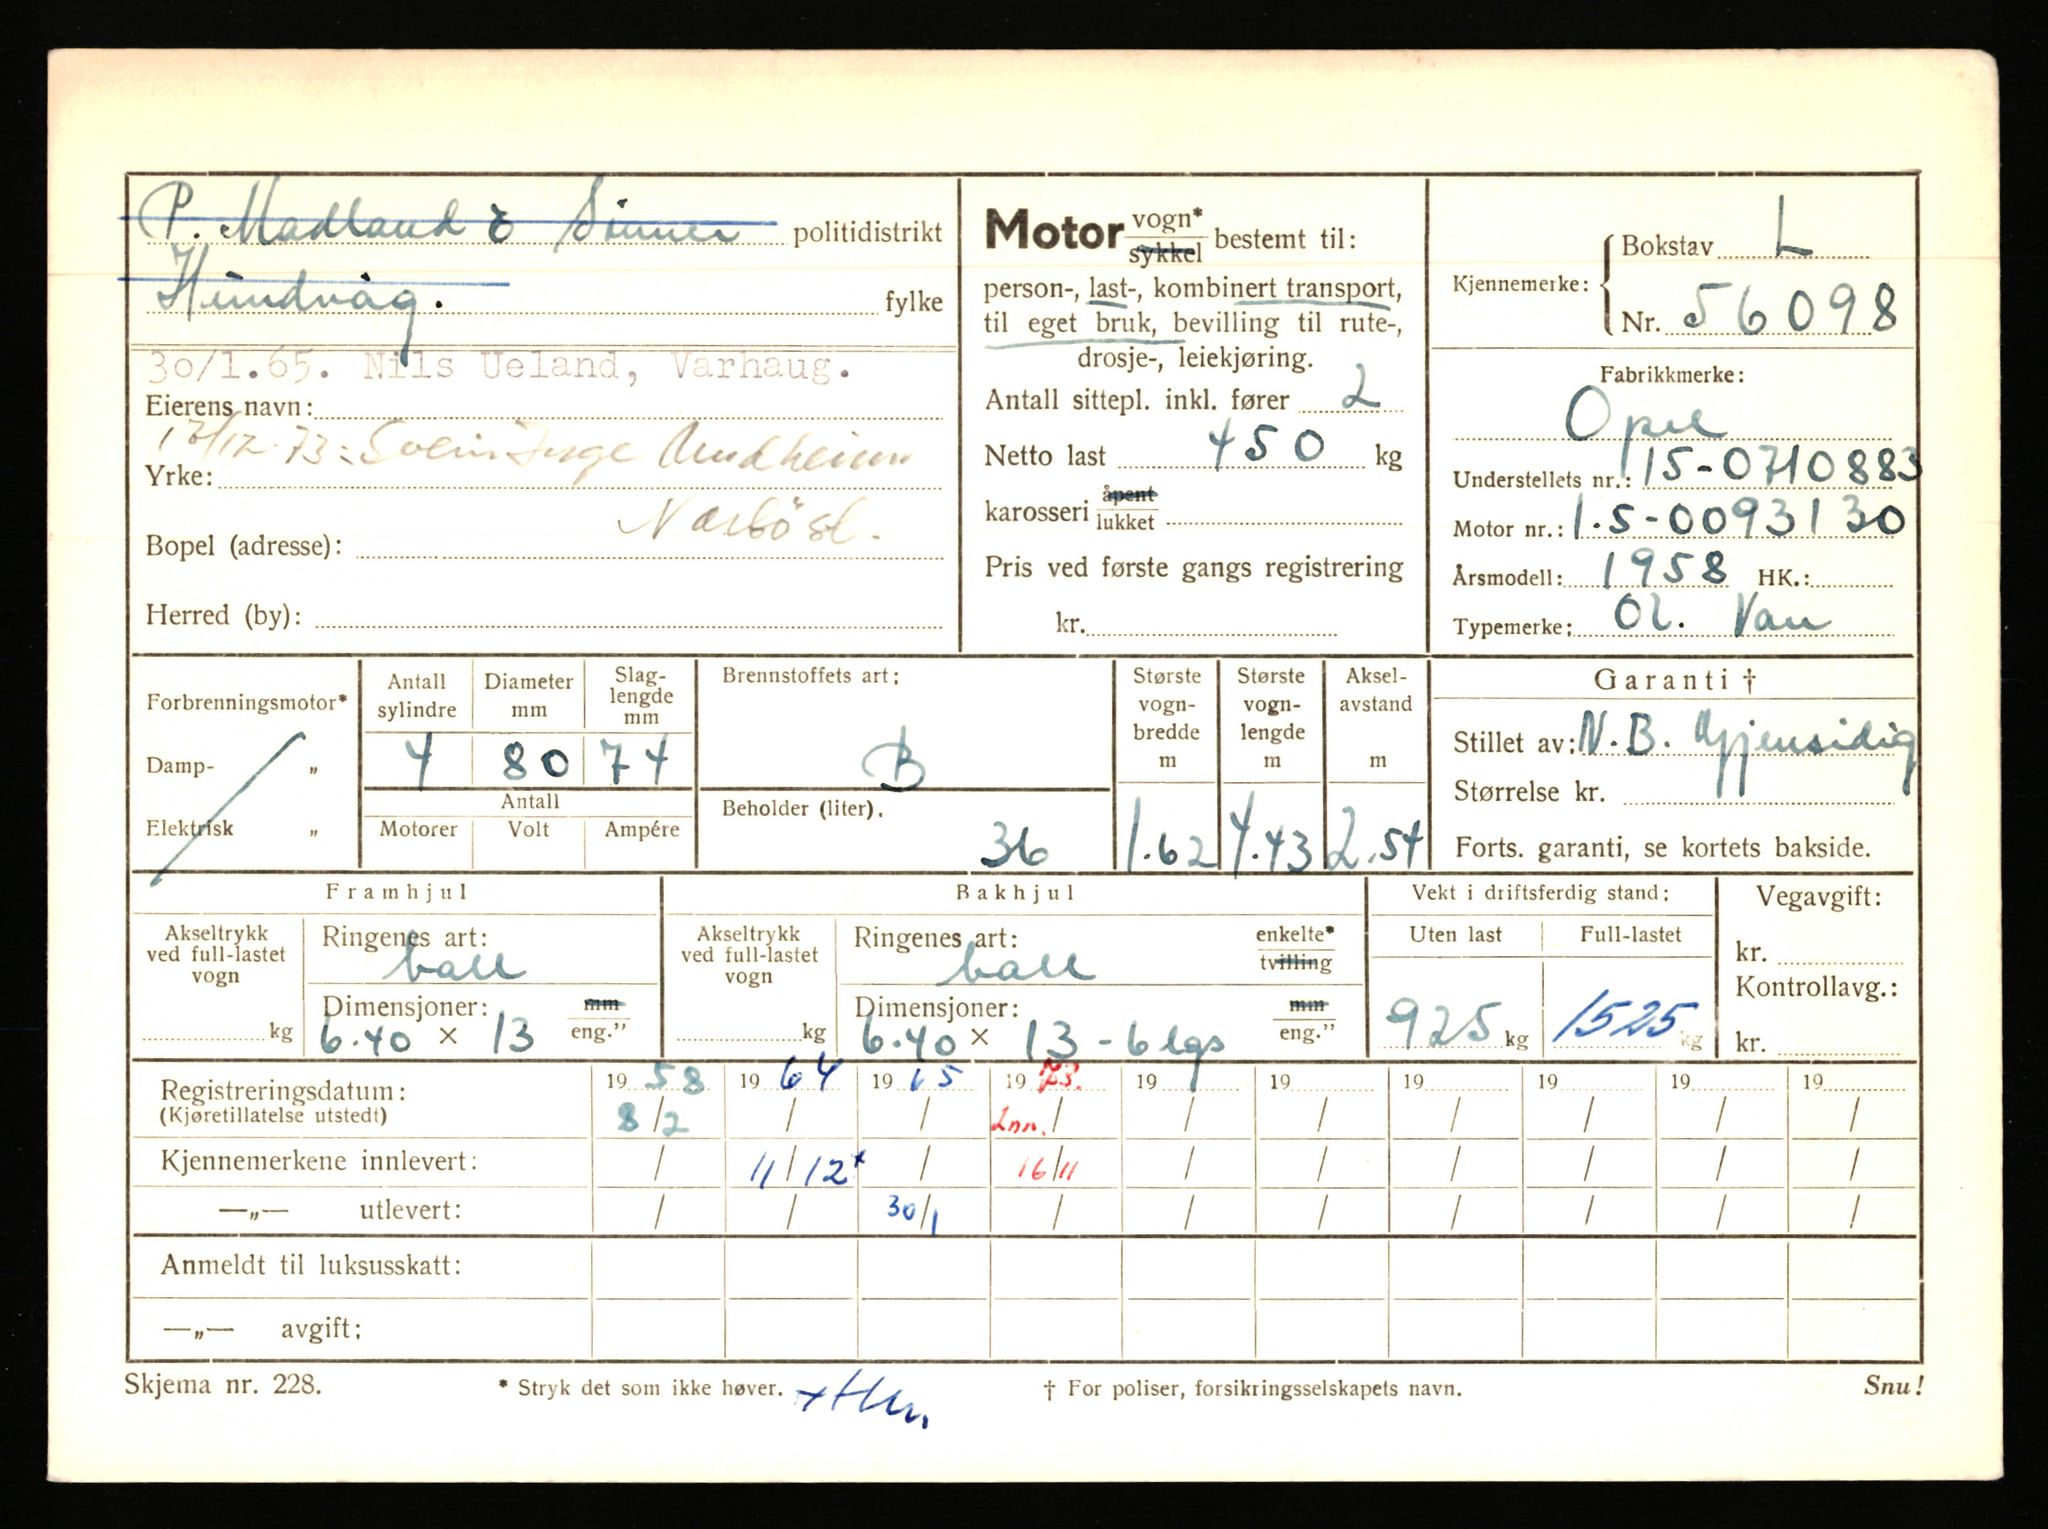 P. Madland & Sønner politidistrikt
Hundvåg. fylke
30/1.65. Nils Ueland, Varhaug.
Eierens navn:
12/12-73: Svein Inge Undheim
Yrke:
Nærbö st.
Bopel (adresse):
Herred (by):
Motor vogn* sykkel bestemt til:
person-, last-, kombinert transport,
til eget bruk, bevilling til rute-,
drosje-, leiekjøring.
Antall sittepl. inkl. fører 2
Netto last 450 kg
karosseri åpent lukket
Pris ved første gangs registrering
kr.
Kjennemerke: Bokstav L
Nr. 56098
Fabrikkmerke:
Opel
Understellets nr.: 15-0710883
Motor nr.: 1.5-0093130
Årsmodell: 1958 HK.:
Typemerke: Ol. Van
Forbrenningsmotor*
Damp- „
Elektrisk „
Antall sylindre Diameter mm Slag-lengde mm
4 80 74
Antall
Motorer Volt Ampére
Brennstoffets art:
B
Beholder (liter).
36
Største vogn-bredde m Største vogn-lengde m Aksel-avstand m
1.62 4.43 2.54
Garanti †
Stillet av: N.B. Gjensidig
Størrelse kr.
Forts. garanti, se kortets bakside.
Framhjul
Akseltrykk ved full-lastet vogn
kg
Ringenes art:
ball
Dimensjoner: mm
6.40 × 13 eng."
Bakhjul
Akseltrykk ved full-lastet vogn
kg
Ringenes art: enkelte*
ball tvilling
Dimensjoner: mm
6.40 × 13 - 6 lgs eng."
Vekt i driftsferdig stand:
Uten last Full-lastet
925 kg 1525 kg
Vegavgift:
kr.
Kontrollavg.:
kr.
Registreringsdatum: 19 58 19 64 19 65 19 73. 19 19 19 19 19 19
(Kjøretillatelse utstedt) 8/2 / / Inn. / / / / / / /
Kjennemerkene innlevert: / 11/12 x / 16/11 / / / / / /
—„— utlevert: / / 30/1 / / / / / / /
Anmeldt til luksusskatt:
—„— avgift:
Skjema nr. 228. * Stryk det som ikke høver. † For poliser, forsikringsselskapets navn. Snu!